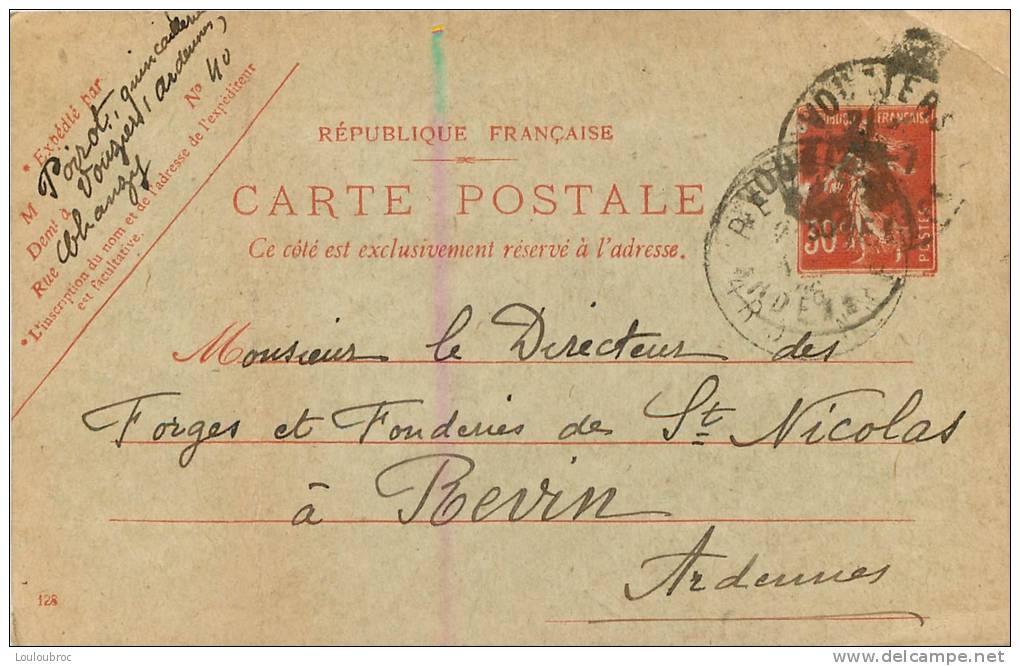 * Expédié par
M Poirot, quincaillerie
Demt à Vouziers, (Ardennes)
Rue Chanzy No 40
* L'inscription du nom et de l'adresse de l'expéditeur
est facultative.
RÉPUBLIQUE FRANÇAISE
CARTE POSTALE
Ce côté est exclusivement réservé à l'adresse.
FRANÇAISE
30
POSTES
Monsieur le Directeur des
Forges et Fonderies de St Nicolas
à Revin
Ardennes
128
Louloubroc